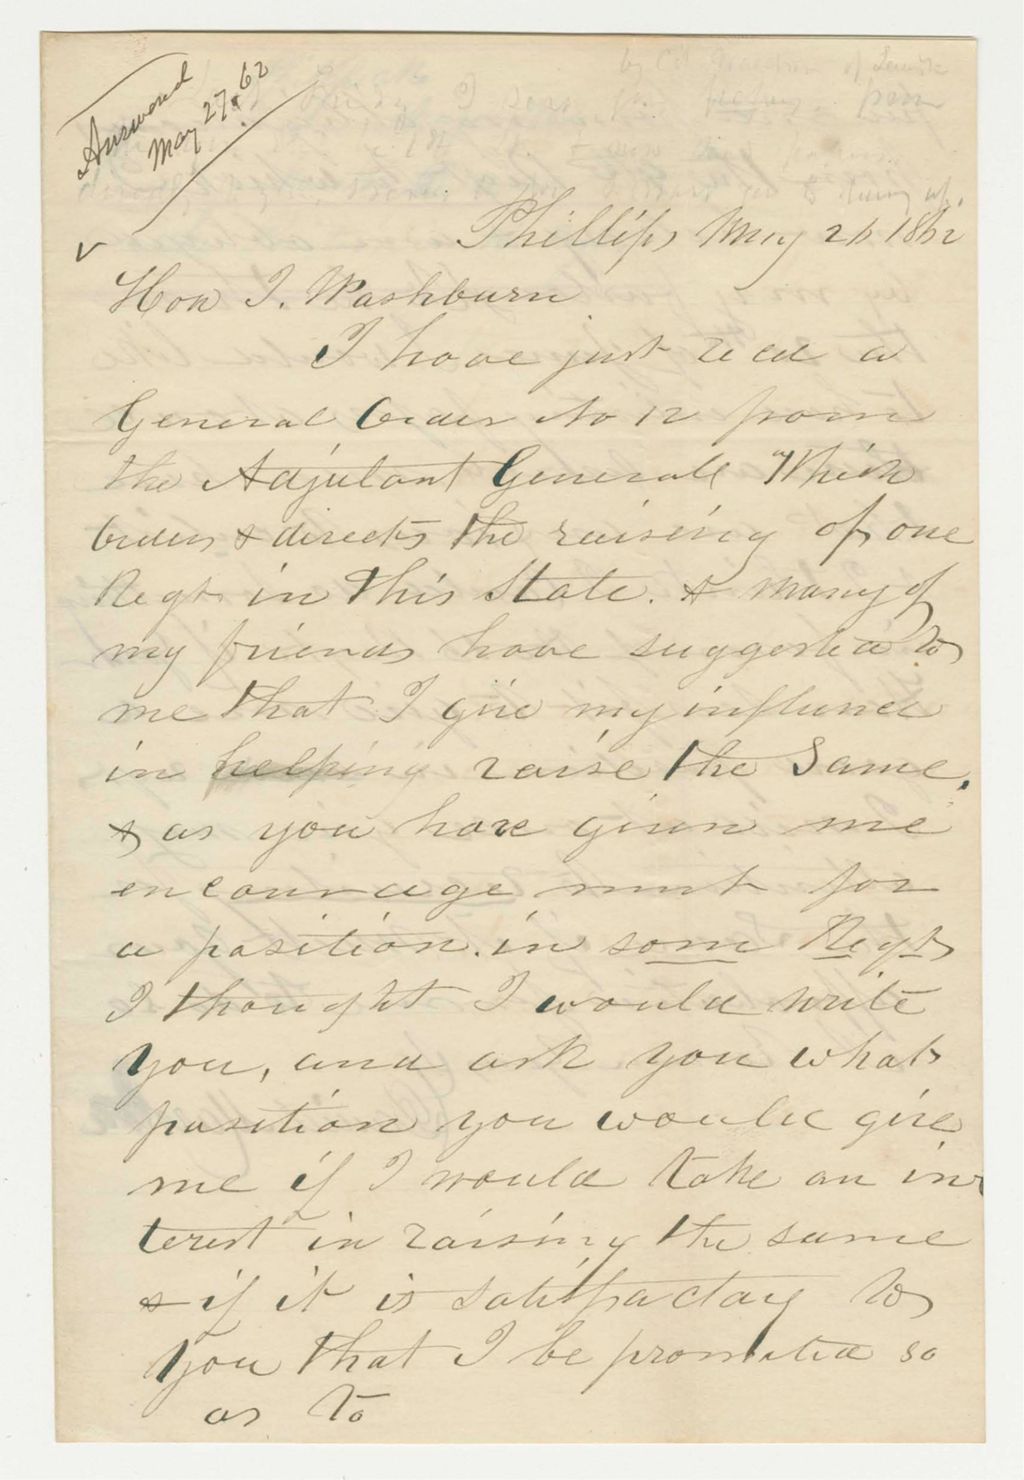 Answered
May 27. 62
Phillips May 26 1862
Hon I. Washburn
I have just read a
General Order No 12 from
the Adjutant Generall Which
Orders & directs the raising of one
Regt in this State. & many of
my friends have suggested to
me that I give my influence
in helping raise the Same.
& as you have given me
encourage ment for
a position. in some Regt
I thought I would write
you, and ask you what
position you would give
me if I would take an in
terest in raising the same
& if it is satisfactory to
you that I be promoted so
as to